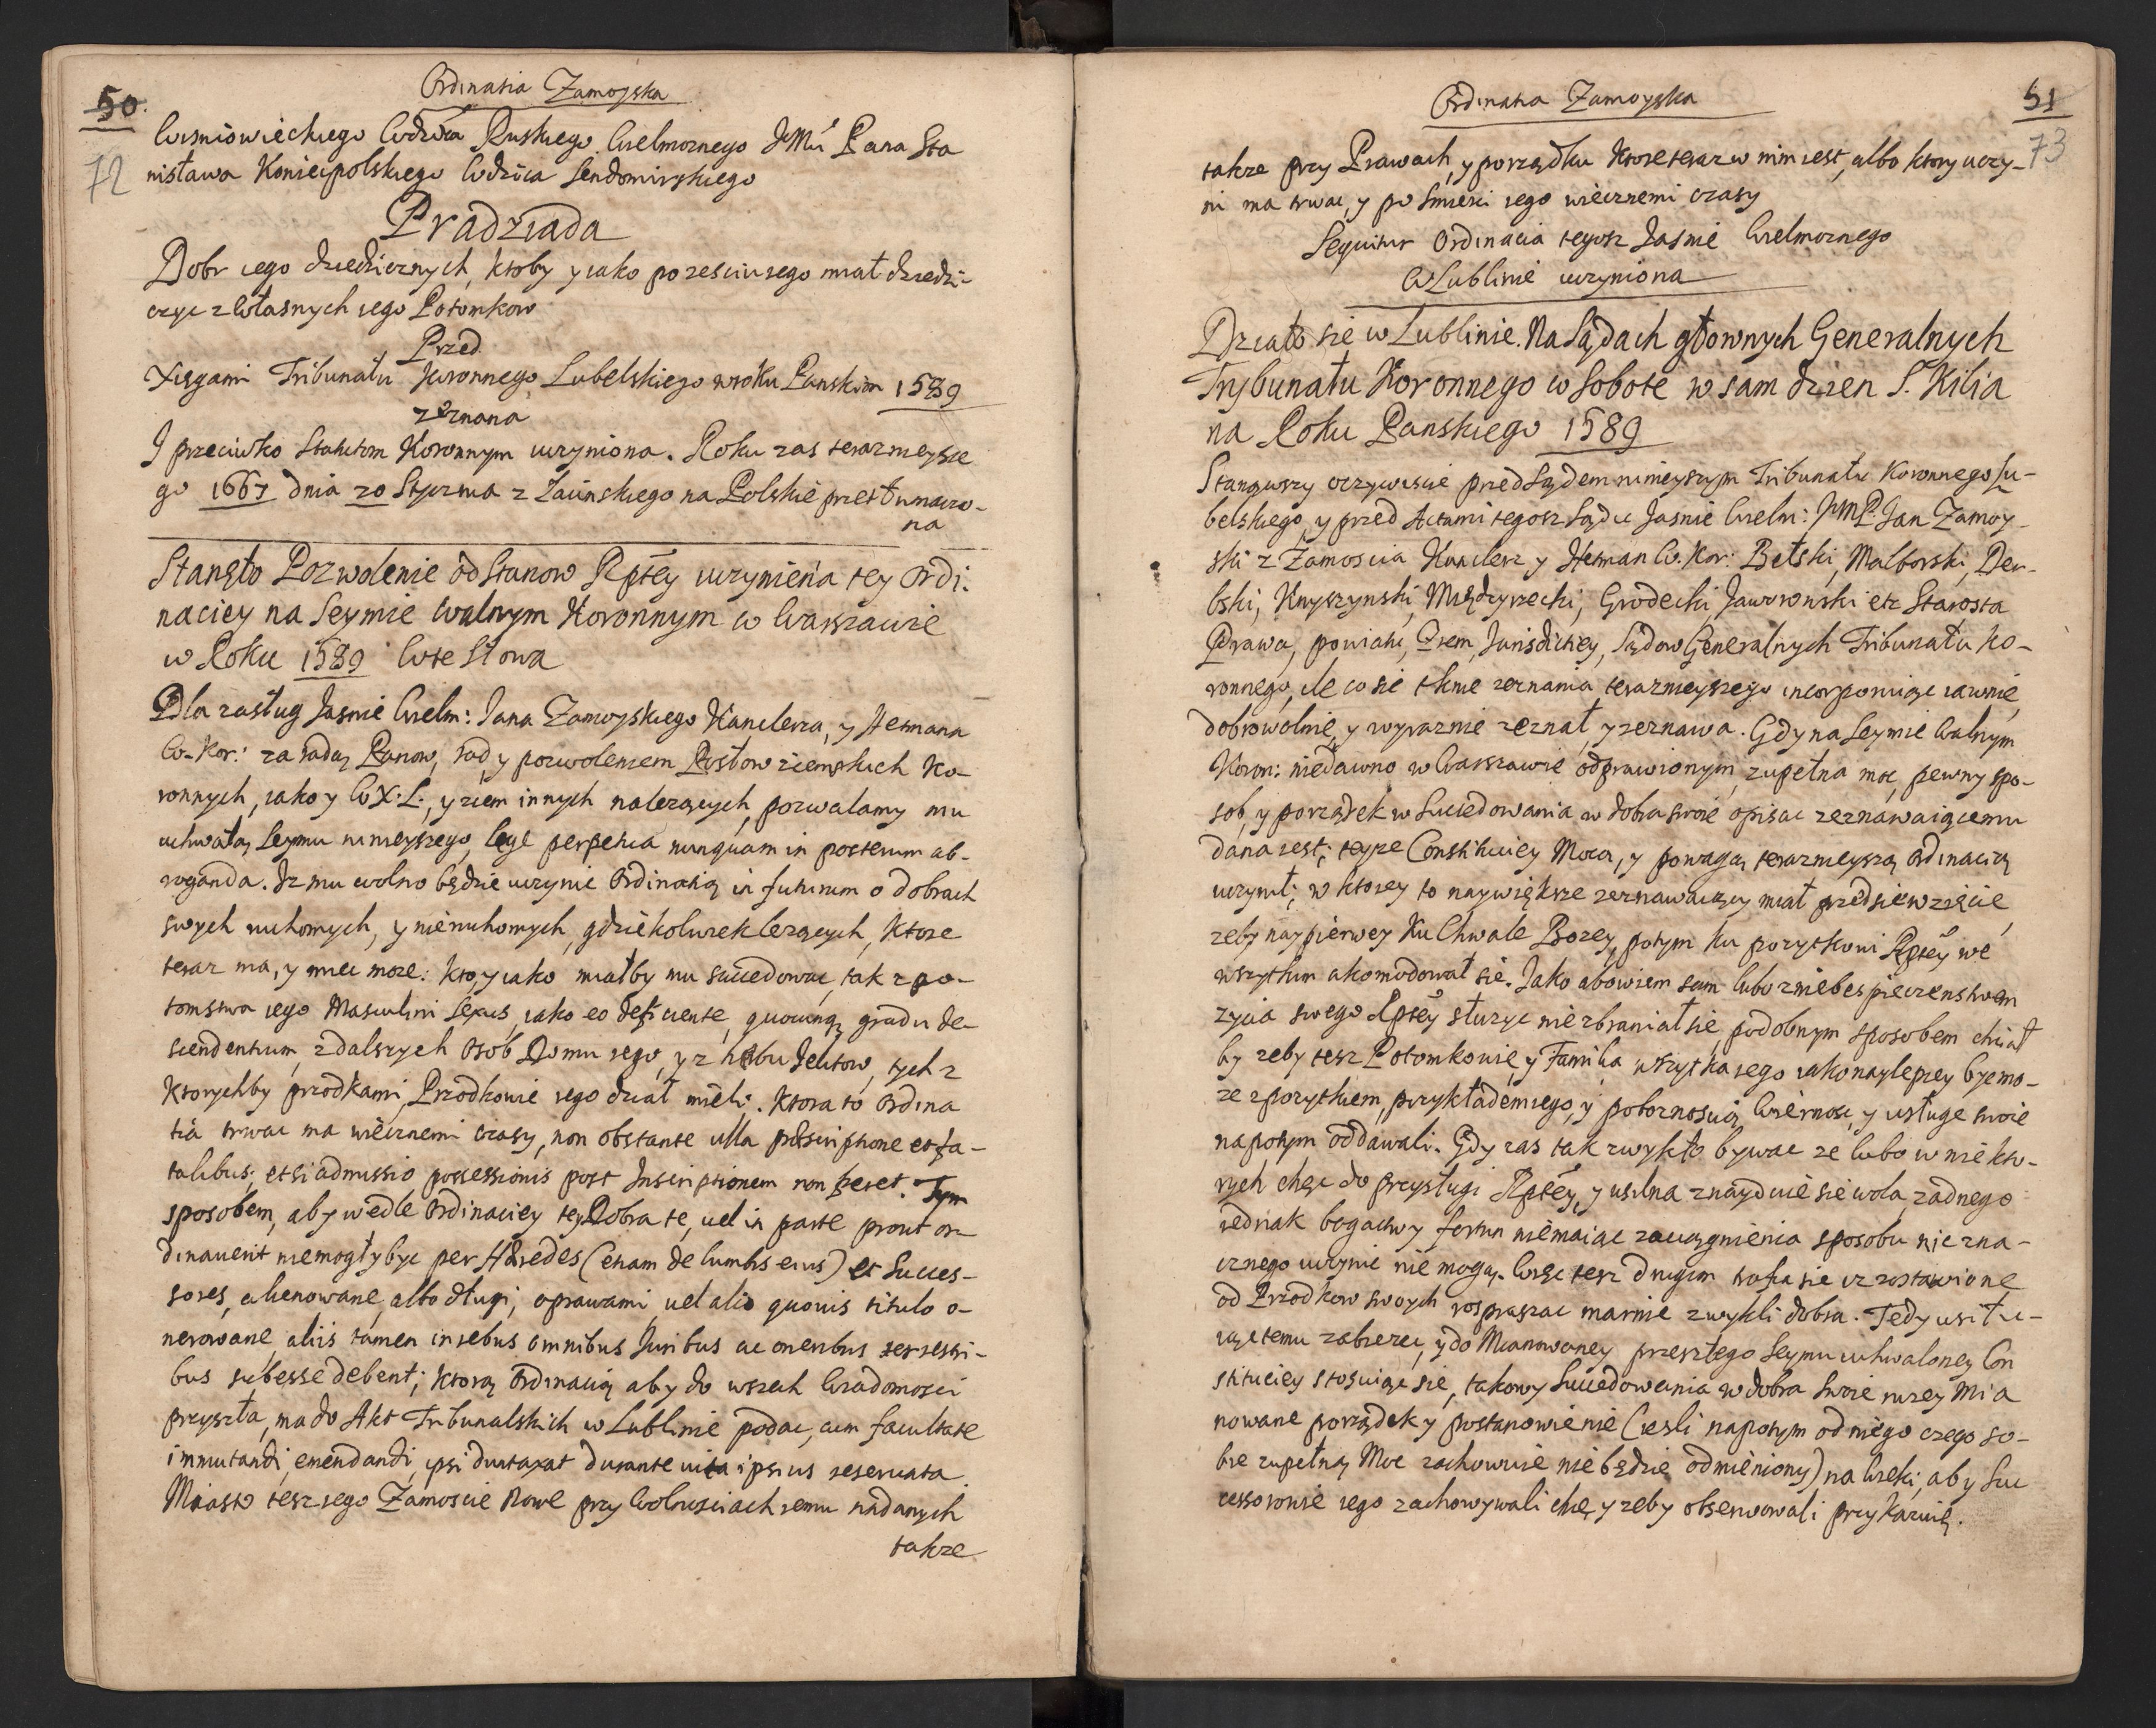 50.
72
Ordinatia Zamoyska
Wisniowieckiego Wdzica Ruskiego. Wielmoznego JMu Pana Sta
nisława Koniecpolskiego Wdzica Sendomirskiego
Pradziada
Dobr iego dziedzicznych, ktoby y iako po zesciu iego miał dziedzi-
czyc z własnych iego Potomkow
Przed
Xięgami Tribunału Koronnego Lubelskiego w roku Panskim 1589
zeznana
I przeciwko Statutom Koronnym uczyniona. Roku zas terazneysze
go 1667 dnia 20 Stycznia z Łacinskiego na Polskie przetłumaczo-
na
Stanęło Pozwolenie od Stanow Rptey uczynienia tey Ordi:
naciey na Seymie walnym Koronnym w Warszawie
w Roku 1589 wte słowa
Dla zasług Jasnie Wielm: Jana Zamoyskiego Kanclerza, y Hetmana
W. Kor: za radą Panow, rad, y pozwoleniem Posłow ziemskich Ko-
ronnych, iako y W.X.L. y ziem innych nalezących, pozwalamy mu
uchwałą Seymu ninieyszego, lege perpetua nunquam in posterum ab-
roganda. Iz mu wolno będzie uczynic Ordinatią in futurum o dobrach
swych ruchomych, y nieruchomych, gdziekolwiek lezących, ktore
teraz ma, y miec moze: kto, y iako miałby mu succedowac, tak z po-
tomstwa iego Masculini Sexus, iako eo deficiente, quocunq gradu de-
scendentium, z dalszych osob Domu iego, y z herbu Jelitow, tych z
ktorychby przodkami, Przodkowie iego dział mieli. Ktora to Ordina
tia trwac ma wiecznemi czasy, non obstante ulla præscriptione et fa-
talibus; etsi admissio possessionis post Inscriptionem non fieret. Tym
sposobem, aby wedle Ordinaciey tey Dobra te, uel in parte prout or-
dinauerit niemogły byc per Hæredes (etiam de lumbis eius) et Succes-
sores, alienowane, albo długi, oprawami, uel alio quouis titulo o-
nerowane, aliis tamen in rebus omnibus Juribus ac oneribus terrestri-
bus subesse debent; ktorą Ordinacią aby do wszech Wiadomosci
przyszła, ma do Akt Tribunalskich w Lublinie podac, cum facultate
immutandi, emendandi, ipsi duntaxat durante uita ipsius reseruata
Miasto tesz iego Zamoscie Nowe przy Wolnosciach iemu nadanych
takze
Ordinatia Zamoyska
51
73
takze przy Prawach, y porządku ktore teraz w nim iest, albo ktory uczy-
ni ma trwac, y po Smierci iego wiecznemi czasy
Sequitur Ordinacia tegosz Jasnie Wielmoznego
W Lublinie uczyniona
Działo sie w Lublinie. Na Sądach głownych Generalnych
Trybunału Koronnego w Sobote w sam dzien S. Kilia
na Roku Panskiego 1589
Stanąwszy oczywiscie przed Sądem ninieyszym Tribunału Koronnego Lu-
belskiego, y przed Actami tegosz Sądu Jasnie Wielm: JmP. Jan Zamoy-
ski z Zamoscia Kanclerz y Hetman W. Kor: Bełski, Malborski, Der-
bski, Knyszynski, Międzyrzecki, Grodecki Jaworowski etc Starosta
Prawa, powiatu, Ziem, Jurisdictiey, Sądow Generalnych Tribunału Ko-
ronnego, ile co sie tknie zeznania terazneyszego incorporuiąc iawnie,
dobrowolnie, y wyraznie zeznał, y zeznawa. Gdy na Seymie Walnym
Koron: niedawno w Warszawie odprawionym, zupełna moc, pewny spo-
sob, y porządek w Succedowania w dobra swoie opisac zeznawaiącemu
dana iest; teyze Constituciey Mocą, y powagą terazneyszą Ordinacią
uczynił; w ktorey to naywiększe zeznawaiący miał przedsiewzięcie,
zeby naypierwey Ku Chwale Bozey, potym ku pozytkowi Rptey we
wszytkim akomodował sie. Jako abowiem sam lubo zniebespieczenstwem
zycia swego Rptey słuzyc nie zbraniał sie, podobnym sposobem chciał
by zeby tesz Potomkowie, y Familia wszytka iego iako naylepiey byc mo-
ze z pozytkiem, przykładem iego, y poboznoscią Wiernosc, y usługe swoie
napotym oddawali. Gdy zas tak zwykło bywac ze lubo w niekto-
rych chęc do przysługi Rptey, y usilna znayduie sie wola, zadnego
iednak bogactwy fortun niemaiąc zaciągnienia sposobu nic zna-
cznego uczynic nie mogą. Więc tesz drugim trafia sie iz zostawione
od Przodkow swoych rospraszac marnie zwykli dobra. Tedy usiłu-
iąc temu zabiezec, y do Mianowaney przeszłego Seymu uchwaloney Con
stituciey stosuiąc sie, takowy Succedowania w dobra swoie nizey Mia
nowane porządek y postanowienie (iesli napotym od niego czego so-
bie zupełną Moc zachowuie nie będzie odmieniony) na Wieki, aby Suc
cessorowie iego zachowywali chcę, y zeby obserwowali przykazuię.